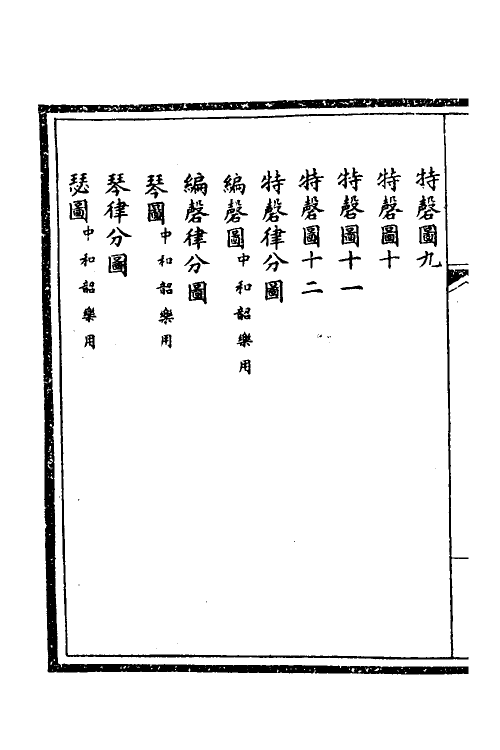 特磬圖九
特磬圖十
特磬圖十一
特磬圖十二
特磬律分圖
編磬圖中和韶樂用
編磬律分圖
琴圖中和韶樂用
琴律分圖
瑟圖中和韶樂用